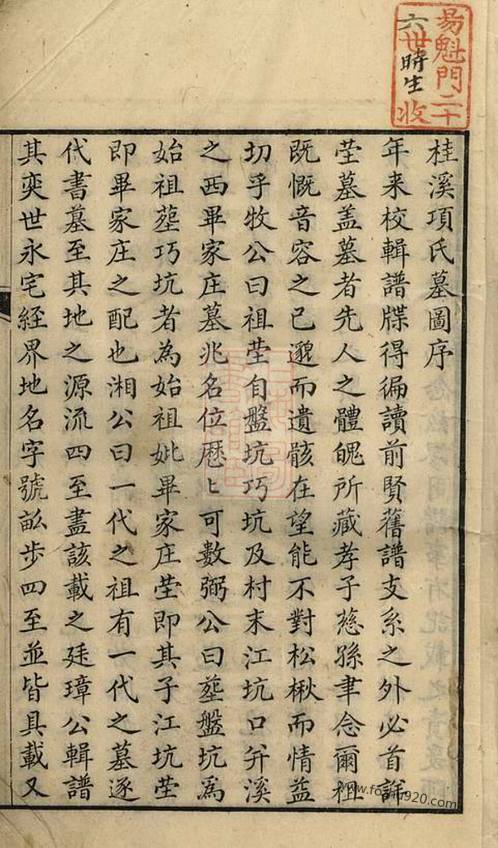 桂溪項氏墓圖序
年来校輯譜牒得徧讀前賢舊譜支系之外必首詳
茔墓盖墓者先人之體魄所藏孝子慈孫聿念爾祖
既慨音容之已邈而遺骸在望能不對松楸而情益
切乎牧公曰祖茔自盤坑巧坑及村末江坑口并溪
之西畢家庄墓兆名位歷〻可數弼公曰塟盤坑爲
始祖塟巧坑者為始祖妣畢家庄茔即其子江坑茔
即畢家庄之配也湘公曰一代之祖有一代之墓逐
代書墓至其地之源流四至盡該載之廷璋公輯譜
其奕世永宅經界地名字號畝步四至並皆具載又
易魁門二十
六世時生收
www.foren920.com